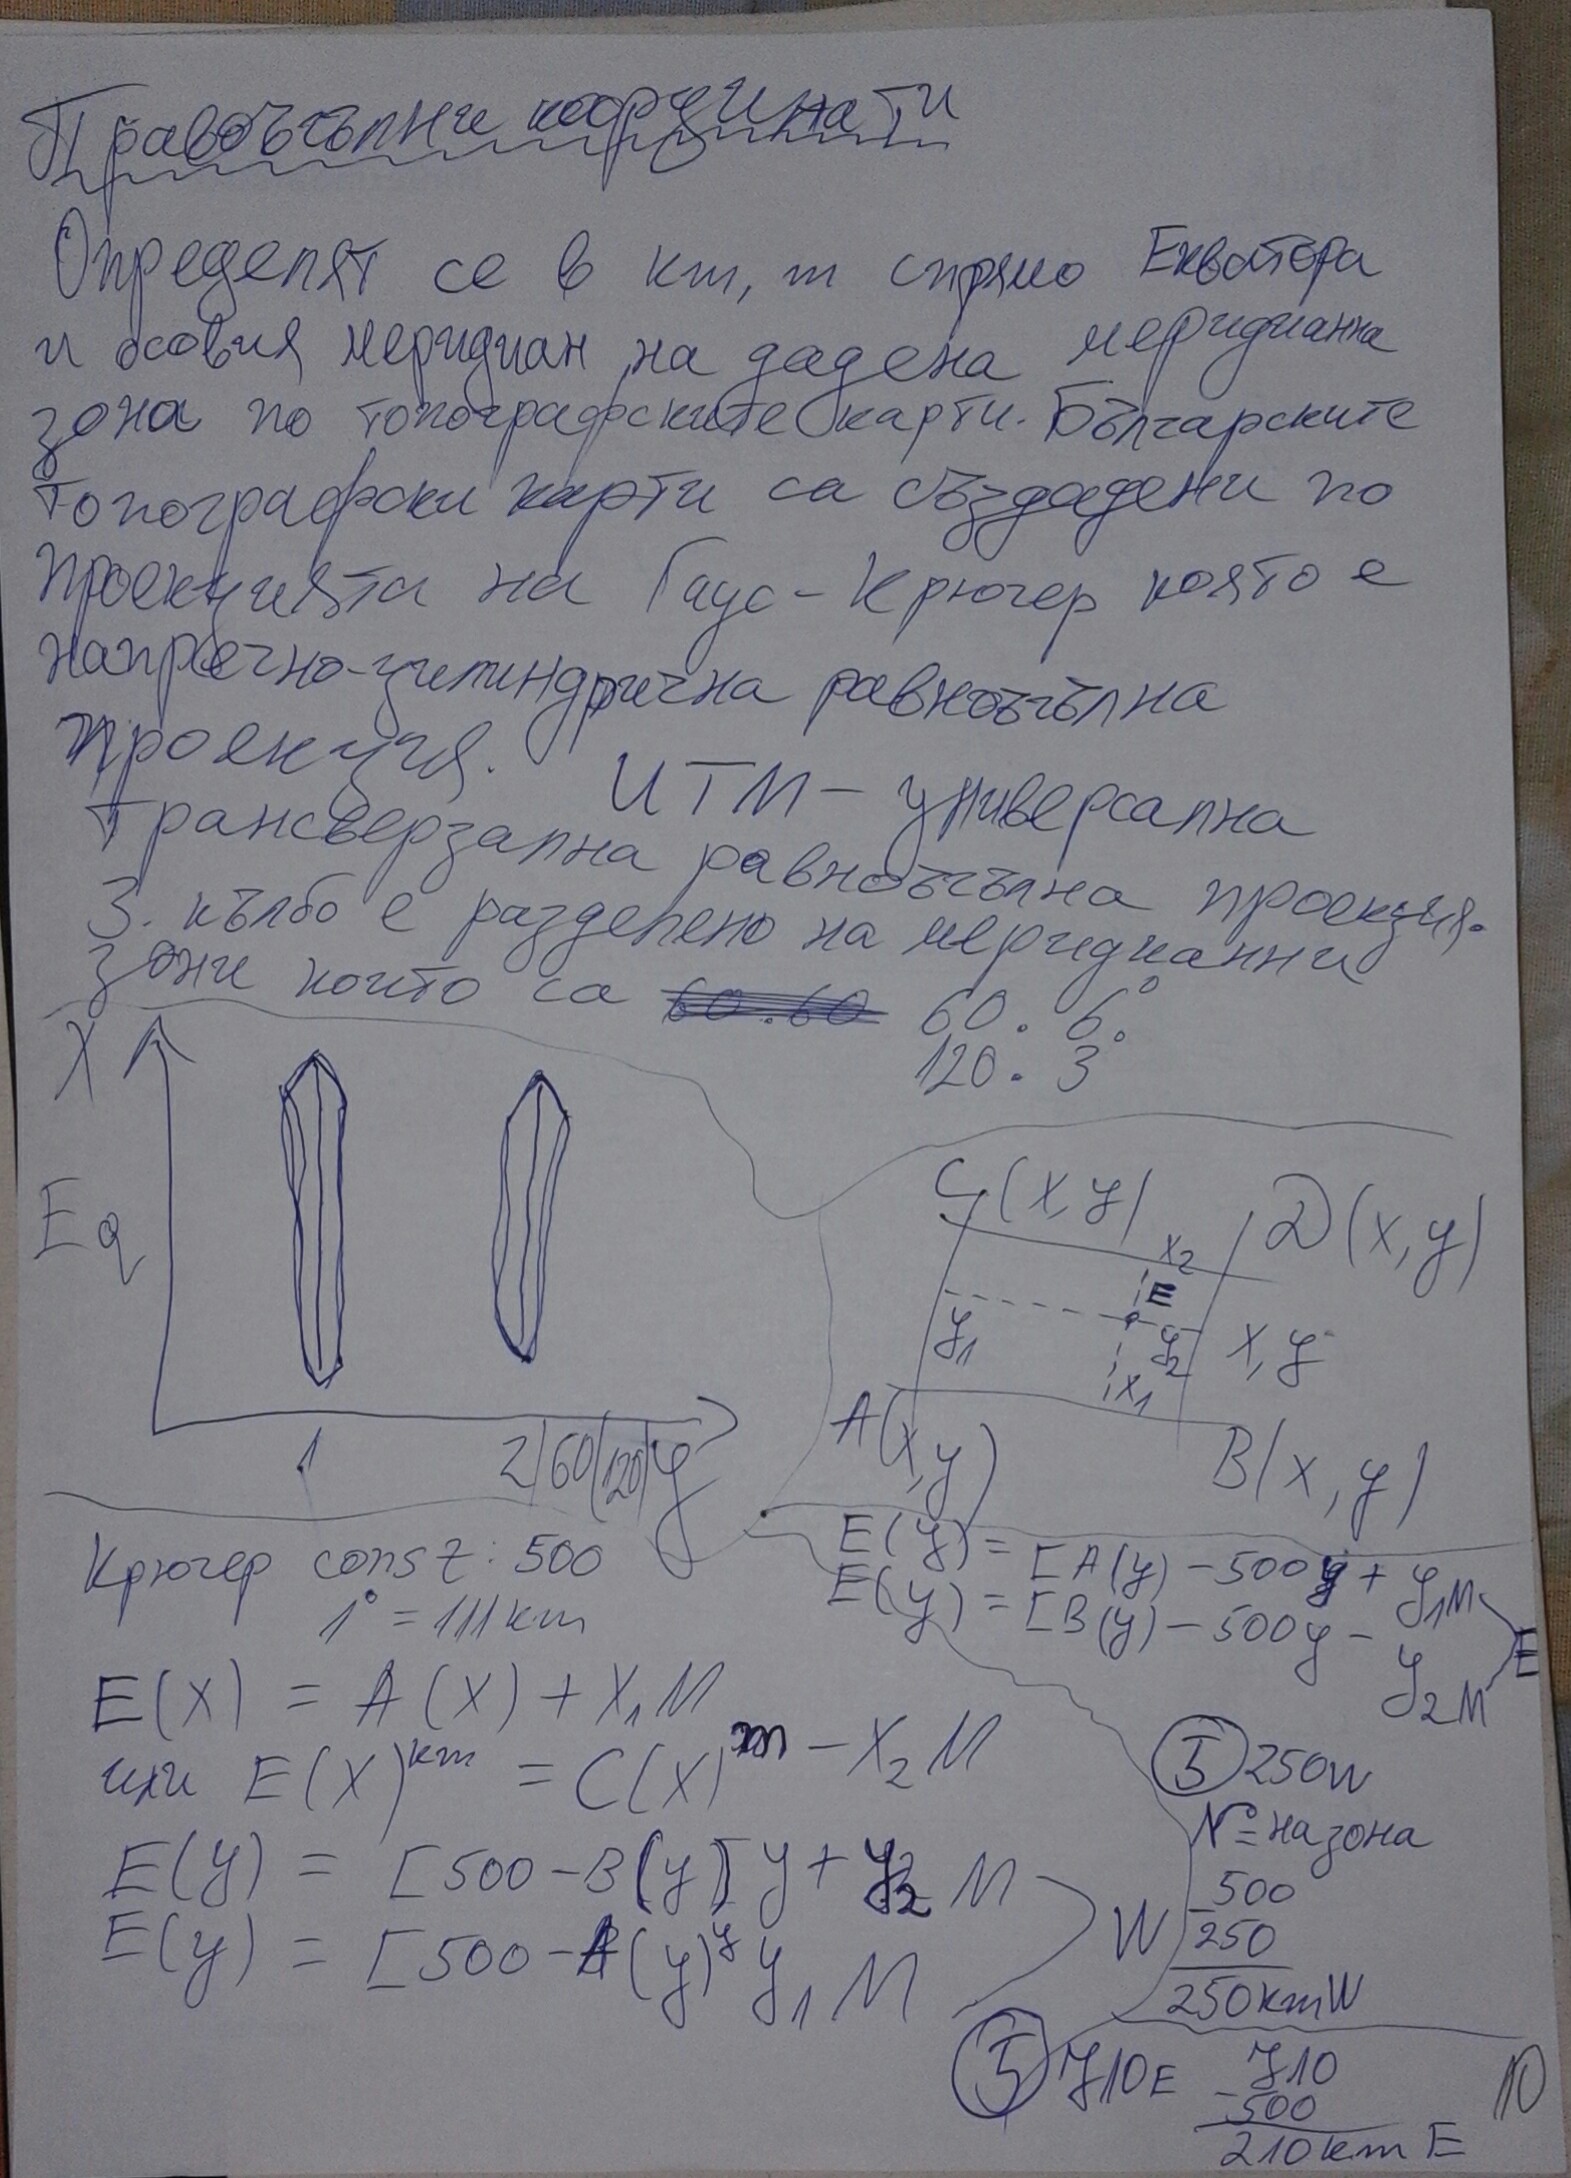 Правоъгълни координати
Определят се в km, m спрямо Екватора
и осовия меридиан на дадена меридианна
зона по топографските карти. Българските
топографски карти са създадени по
проекцията на Гаус-Крюгер която е
напречно-цилиндрична равноъгълна
проекция. UTM – универсална
трансверзална равноъгълна проекция.
З. кълбо е разделено на меридианни
зони които са 60.60 60. 6°
120. 3°
X
Eq
1 2/60/120/y
C(x,y) D(x,y)
x2
E
y1 y2 x,y
x1
A(x,y) B(x,y)
Крюгер const: 500
1° = 111km
E(x) = A(x) + x1M
или E(x)km = C(x)m – x2M
E(y) = [500 – B(y)] y + y2 M
E(y) = [500 – A(y) y y1 M
W
E(y) = [A(y) – 500y + y1M
E(y) = [B(y) – 500y – y2M
E
5 250W
№ на зона
-500
250
250kmW
5 710E 710
-500
210km E
10